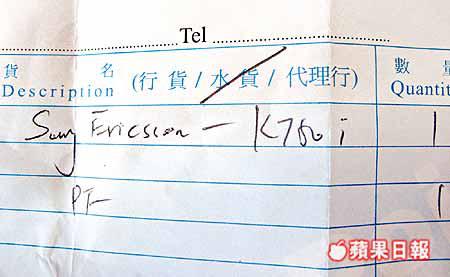 Tel
貨 名 (行貨/水貨/代理行) 數量
Description Quantit
Sony Ericsson — K750i 1
PT 1
蘋果日報